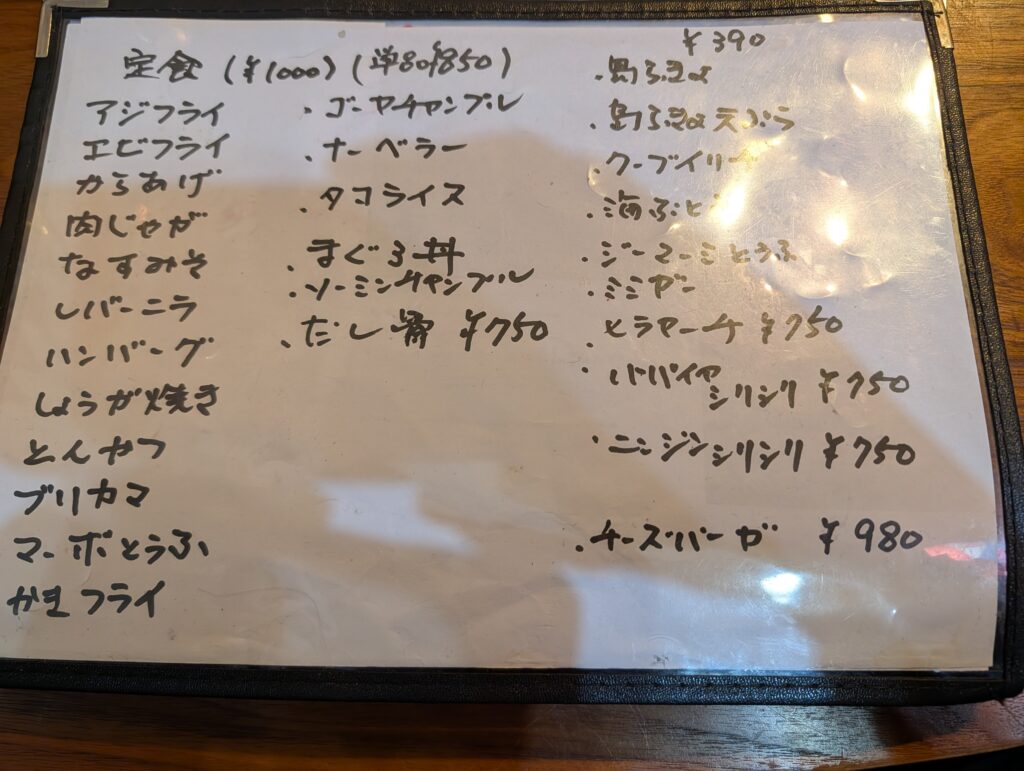 定食 (¥1000) (単品¥850)
アジフライ
エビフライ
からあげ
肉じゃが
なすみそ
レバーニラ
ハンバーグ
しょうが焼き
とんかつ
ブリカマ
マーボとうふ
かきフライ
・ゴーヤーチャンプル
・ナーベラー
・タコライス
・まぐろ丼
・ソーミンチャンプル
・だし骨 ¥750
¥390
・島らっきょ
・島らっきょ天ぷら
・クーブイリチ
・海ぶどう
・ジーマーミとうふ
・ミミガー
・ヒラヤーチ ¥750
・パパイヤ
シリシリ ¥750
・ニンジンシリシリ ¥750
・チーズバーガ ¥980